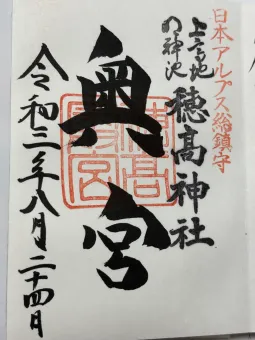 日本アルプス総鎮守
上高地
明神池
穂髙神社
奥宮
令和三年八月二十四日